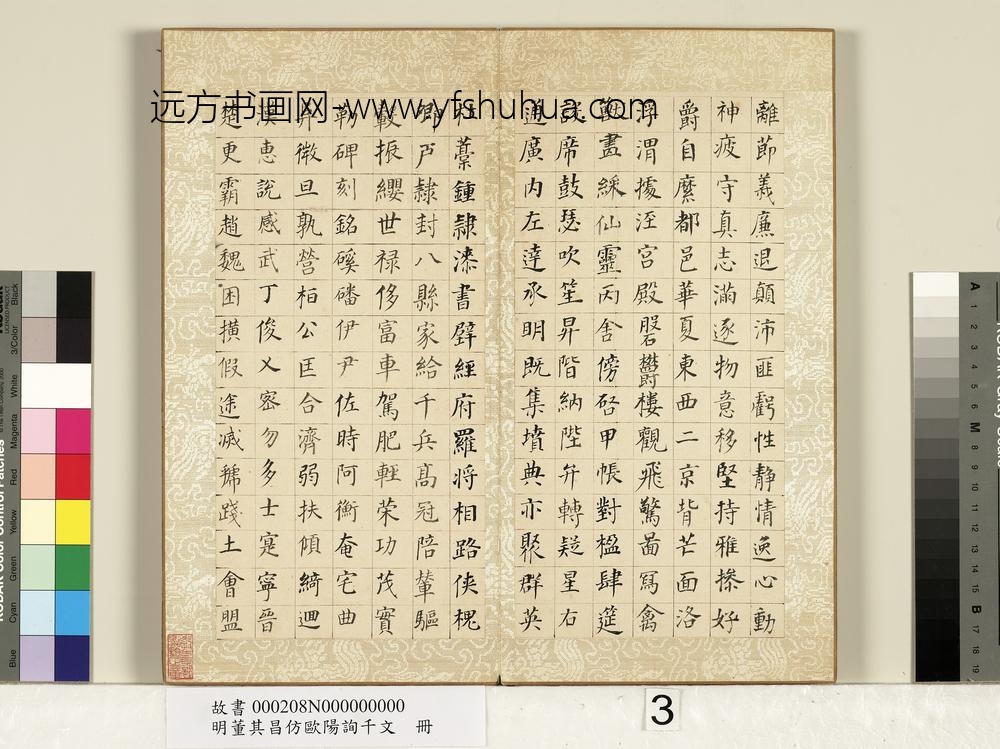 远方书画网-www.yfshuhua.com
離節義廉退顛沛匪虧性静情逸心動
神疲守真志滿逐物意移堅持雅操好
爵自縻都邑華夏東西二京背芒面洛
浮渭據涇宮殿磐鬱樓觀飛驚圖寫禽
獸畫綵仙靈丙舍傍啓甲帳對楹肆筵
設席鼓瑟吹笙昇階納陛弁轉疑星右
通廣内左達承明既集墳典亦聚群英
杜藁鍾隷漆書壁經府羅將相路俠槐
卿戶隷封八縣家給千兵高冠陪輦驅
轂振纓世禄侈富車駕肥輕策功茂實
勒碑刻銘磎磻伊尹佐時阿衡奄宅曲
阜微旦孰營桓公匡合濟弱扶傾綺迴
漢惠說感武丁俊乂密勿多士寔寧晉
楚更霸趙魏困橫假途滅虢踐土會盟
故書 000208N000000000
明董其昌仿歐陽詢千文　冊
3
Black
3/Color
White
Magenta
Red
Yellow
Green
Cyan
Blue
A
1
2
3
4
5
6
M
8
9
10
11
12
13
14
15
B
17
18
19